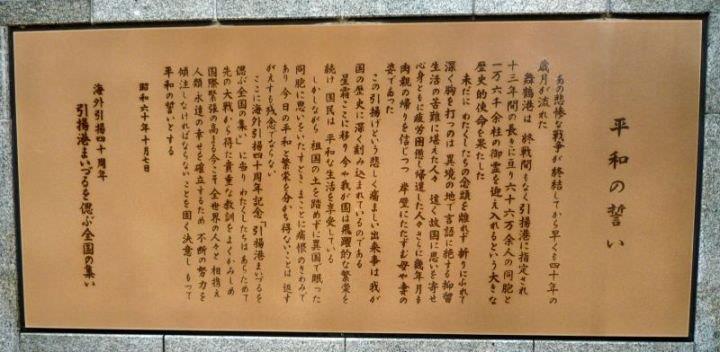 平和の誓い
あの悲惨な戦争が終結してから早くも四十年の
歳月が流れた
舞鶴港は 終戦間もなく引揚港に指定され
十三年間の長きに亘り六十六万余人の同胞と
一万六千余柱の御霊を迎え入れるという大きな
歴史的使命を果たした
未だに わたくしたちの念頭を離れず 折りにふれて
深く胸を打つのは 異境の地で言語に絶する抑留
生活の苦難に堪えた人々 遠く故国に思いを寄せ
心身ともに疲労困憊し帰還した人々さらに幾年月も
肉親の帰りを信じつつ 岸壁にたたずむ母や妻の
姿であった
この引揚げという悲しく痛ましい出来事は 我が
国の歴史に深く刻み込まれているのである
星霜ここに移り 今や我が国は 飛躍的な繁栄を
続け 国民は 平和な生活を享受している
しかしながら 祖国の土を踏めずに異国で眠った
同胞に思いをいたすとき まことに痛恨のきわみで
あり 今日の平和と繁栄を分かち得ないことは 返す
がえすも残念でならない
ここに海外引揚四十周年記念「引揚港まいづるを
偲ぶ全国の集い」に当り わたくしたちは あらためて
先の大戦から得た貴重な教訓をよくかみしめ
国際緊張の高まる今こそ 全世界の人々と 相携え
人類永遠の幸せを確立するため 不断の努力を
傾注しなければならないことを固く決意し もって
平和の誓いとする
昭和六十年十月七日
海外引揚四十周年
引揚港まいづるを偲ぶ全国の集い